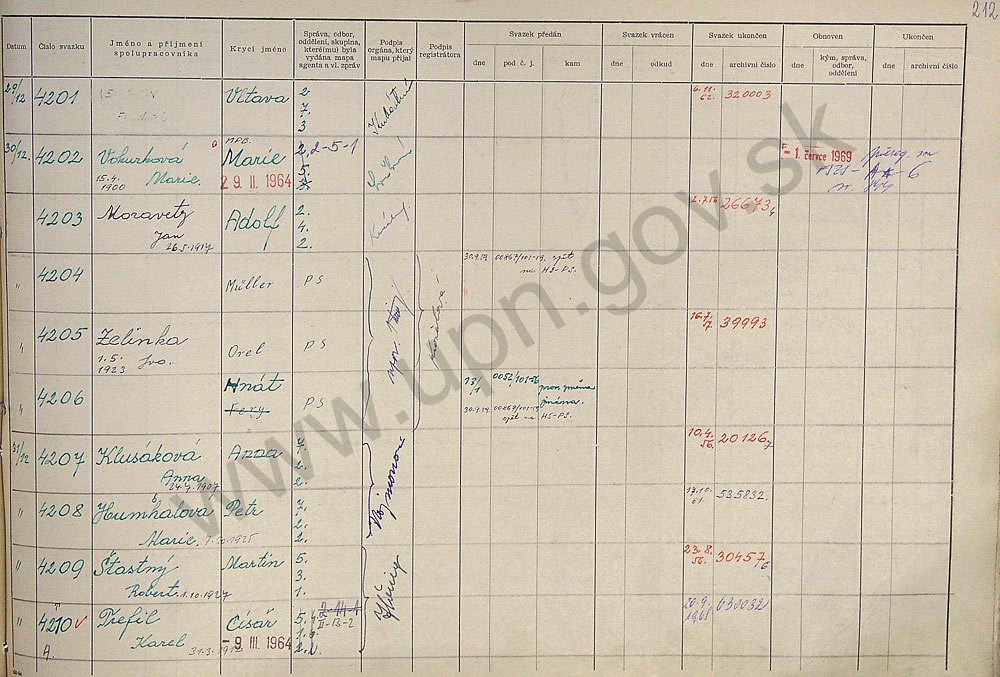 212
Datum
Číslo svazku
Jméno a příjmení
spolupracovníka
Krycí jméno
Správa, odbor,
oddělení, skupina,
které(mu) byla
vydána mapa
agenta a vl. zpráv
Podpis
orgána, který
mapu přijal
Podpis
registrátora
Svazek předán
dne
pod č. j.
kam
Svazek vrácen
dne
odkud
Svazek ukončen
dne
archivní číslo
Obnoven
dne
kým, správa,
odbor,
oddělení
Ukončen
dne
archivní číslo
29/12
4201
Vltava
2.
7.
3
6.11.
62.
320003
30/12.
4202
Vokurková
15.4.
1900
Marie.
Marie
29. II. 1964
2, 2-5-1
5.
- 1. července 1969
6
4203
Moravetz
Jan
26.5.1917
Adolf
2.
4.
2.
26673
4
"
4204
Müller
PS
30.9.59
00867/101-59
zpět
na HS-PS.
"
4205
Zelinka
1.5.
1923
Ivo.
Orel
PS
16.7.
39993
"
4206
Hnát
Fery
PS
13/1
jména.
30.9.59
00867/101-59
zpět na HS-PS.
31/12
4207
Klusáková
Anna
24.7.1907
Anna
7.
2.
2.
10.4.
56.
20126
7
"
4208
Humhalova
Marie
7.10.1925
Petr
7.
2.
2.
17.10.
61.
535832.
"
4209
Šťastný
Robert
1.10.1927
Martin
5.
3.
1.
23.8.
56.
30457
6
"
4210
A.
Trefil
Karel
Císař
- 9. III. 1964
5.
2-14-1
II-13-2
1.
2.
20.9.
1965
630032
www.upn.gov.sk